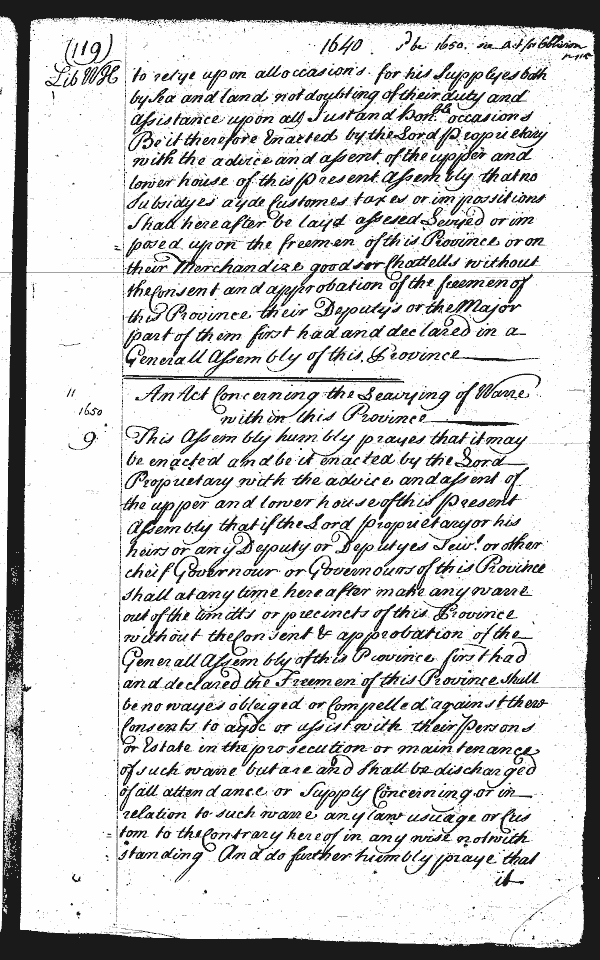 (119)
1640
be 1650. see Act for Oblivion
Lib WH
to relye upon all occasions. for his Supplyes both
by Sea and land not doubting of their duty and
assistance upon all Just and Honble. occasions
Be it therefore Enacted by the Lord Proprietary
with the advice and assent of the upper and
lower house of this Present Assembly that no
Subsidyes ayde Customes taxes or impositions
Shall hereafter be layd assesed Levyed or im
posed upon the freemen of this Province or on
their Merchandize goods or Chattells without
the Consent and approbation of the freemen of
this Province their Deputys or the Major
part of them first had and declared in a
Generall Assembly of this Province
" An Act Concerning the Leavying of Warre
1650 within this Province
9 This Assembly humbly prayes that it may
be enacted and be it enacted by the Lord
Proprietary with the advice and assent of
the upper and lower house of this present
Assembly that if the Lord proprietary or his
heirs or any Deputy or Deputyes Lewt. or other
cheif Governour or Governours of this Province
shall at any time hereafter make any warre
out of the limitts or precincts of this Province
without the Consent & approbation of the
Generall Assembly of this Province first had
and declared the Freemen of this Province shall
be no wayes obleiged or Compelled against their
Consents to ayde or assist with their Persons
or Estate in the prosecution or maintenance
of such warre but are and shall be discharged
of all attendance or Supply Concerning or in
relation to such warre any law usuage or Cus
tom to the Contrary hereof in any wise notwith
standing And do further humbly praye that
it